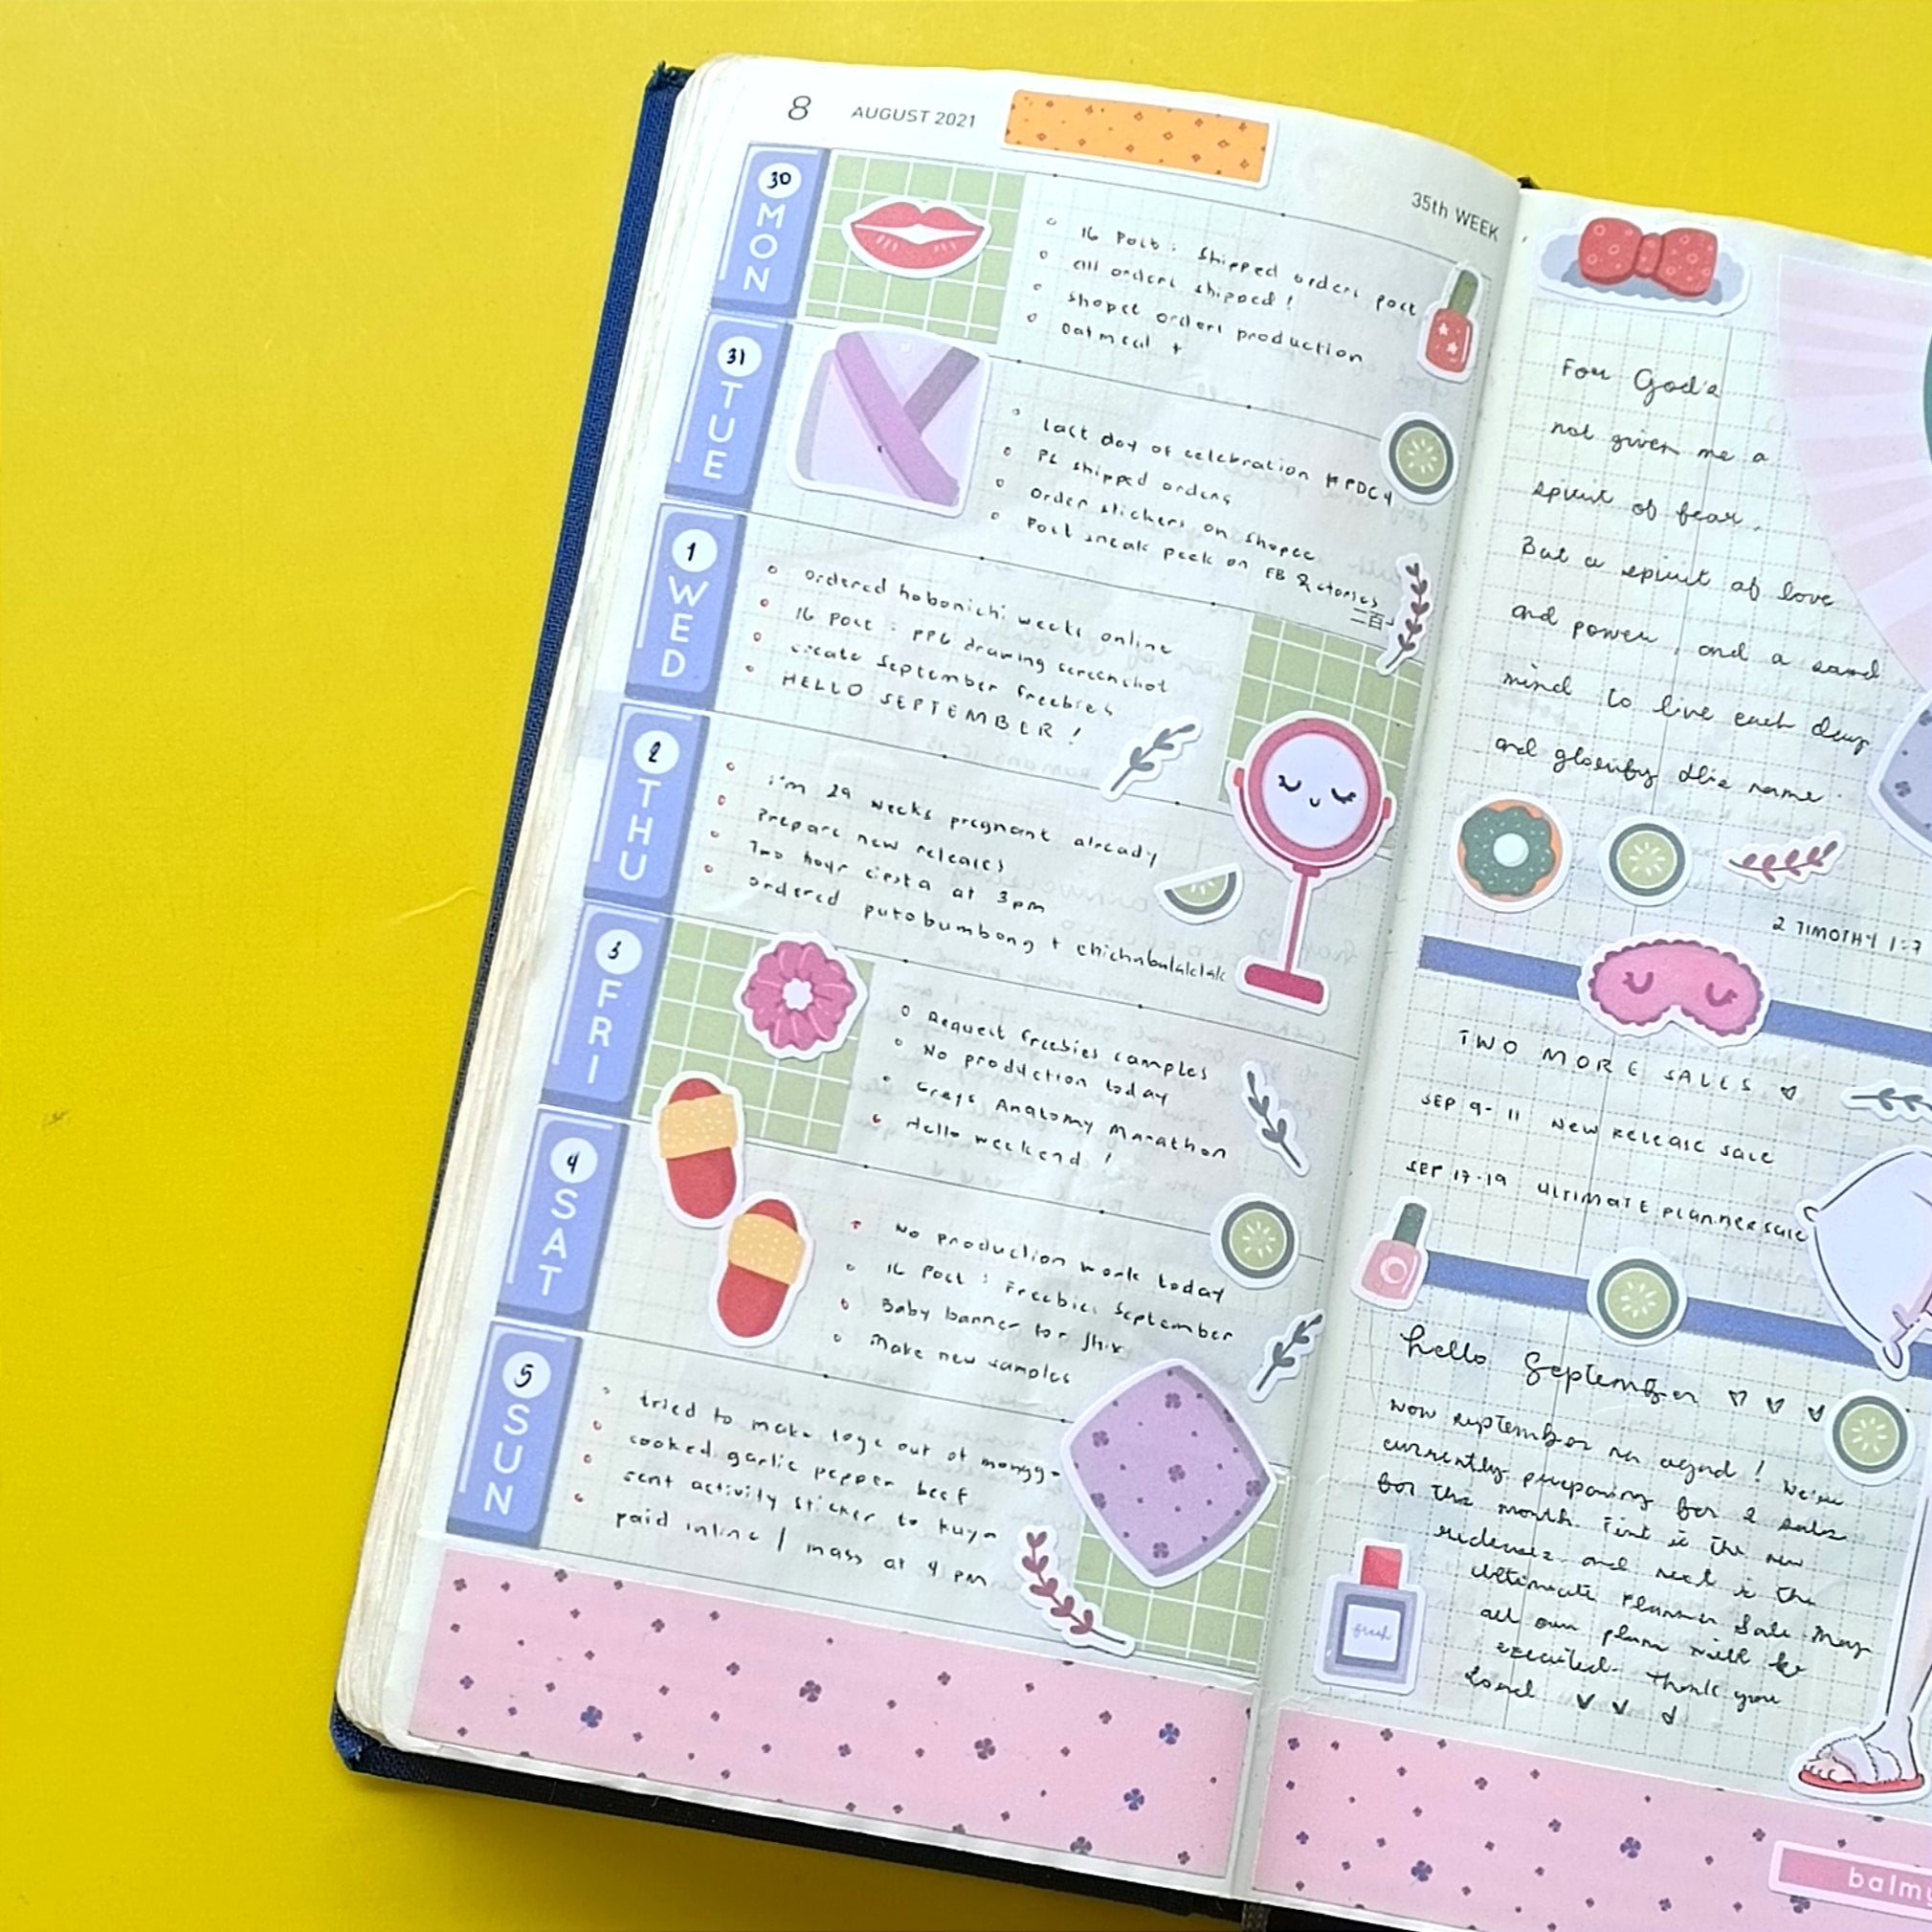 8 AUGUST 2021
35th WEEK
30
MON
IG Post: Shipped orders post
all orders shipped!
shopee orders production
oatmeal +
31
TUE
last day of celebration #PDC4
PL shipped orders
order stickers on shopee
Post sneak peek on FB & stories
二百
1
WED
ordered hobonichi weeks online
IG Post: PPG drawing screenshot
create September freebies
HELLO SEPTEMBER!
2
THU
i'm 29 weeks pregnant already
Prepare new releases
Two hour siesta at 3pm
ordered putobumbong + chichabulaklak
3
FRI
Request freebies samples
No production today
Greys Anatomy Marathon
Hello weekend!
4
SAT
No production work today
IG Post: Freebies September
Baby banner for
Make new samples
5
SUN
tried to make toge out of monggo
cooked garlic pepper beef
sent activity sticker to kuya
paid inline / mass at 4 pm
For God's
not given me a
spirit of fear.
But a spirit of love
and power, and a sound
mind to live each day
and glorify His name
2 TIMOTHY 1:7
TWO MORE SALES
SEP 9-11 NEW RELEASE SALE
SEP 17-19 ULTIMATE PLANNER SALE
hello September
wow september na agad! We're
currently preparing for 2 sales
for the month. First is the new
releases and next is the
Ultimate Planner Sale. May
all our plans will be
executed. Thank you
Lord
fresh
balm